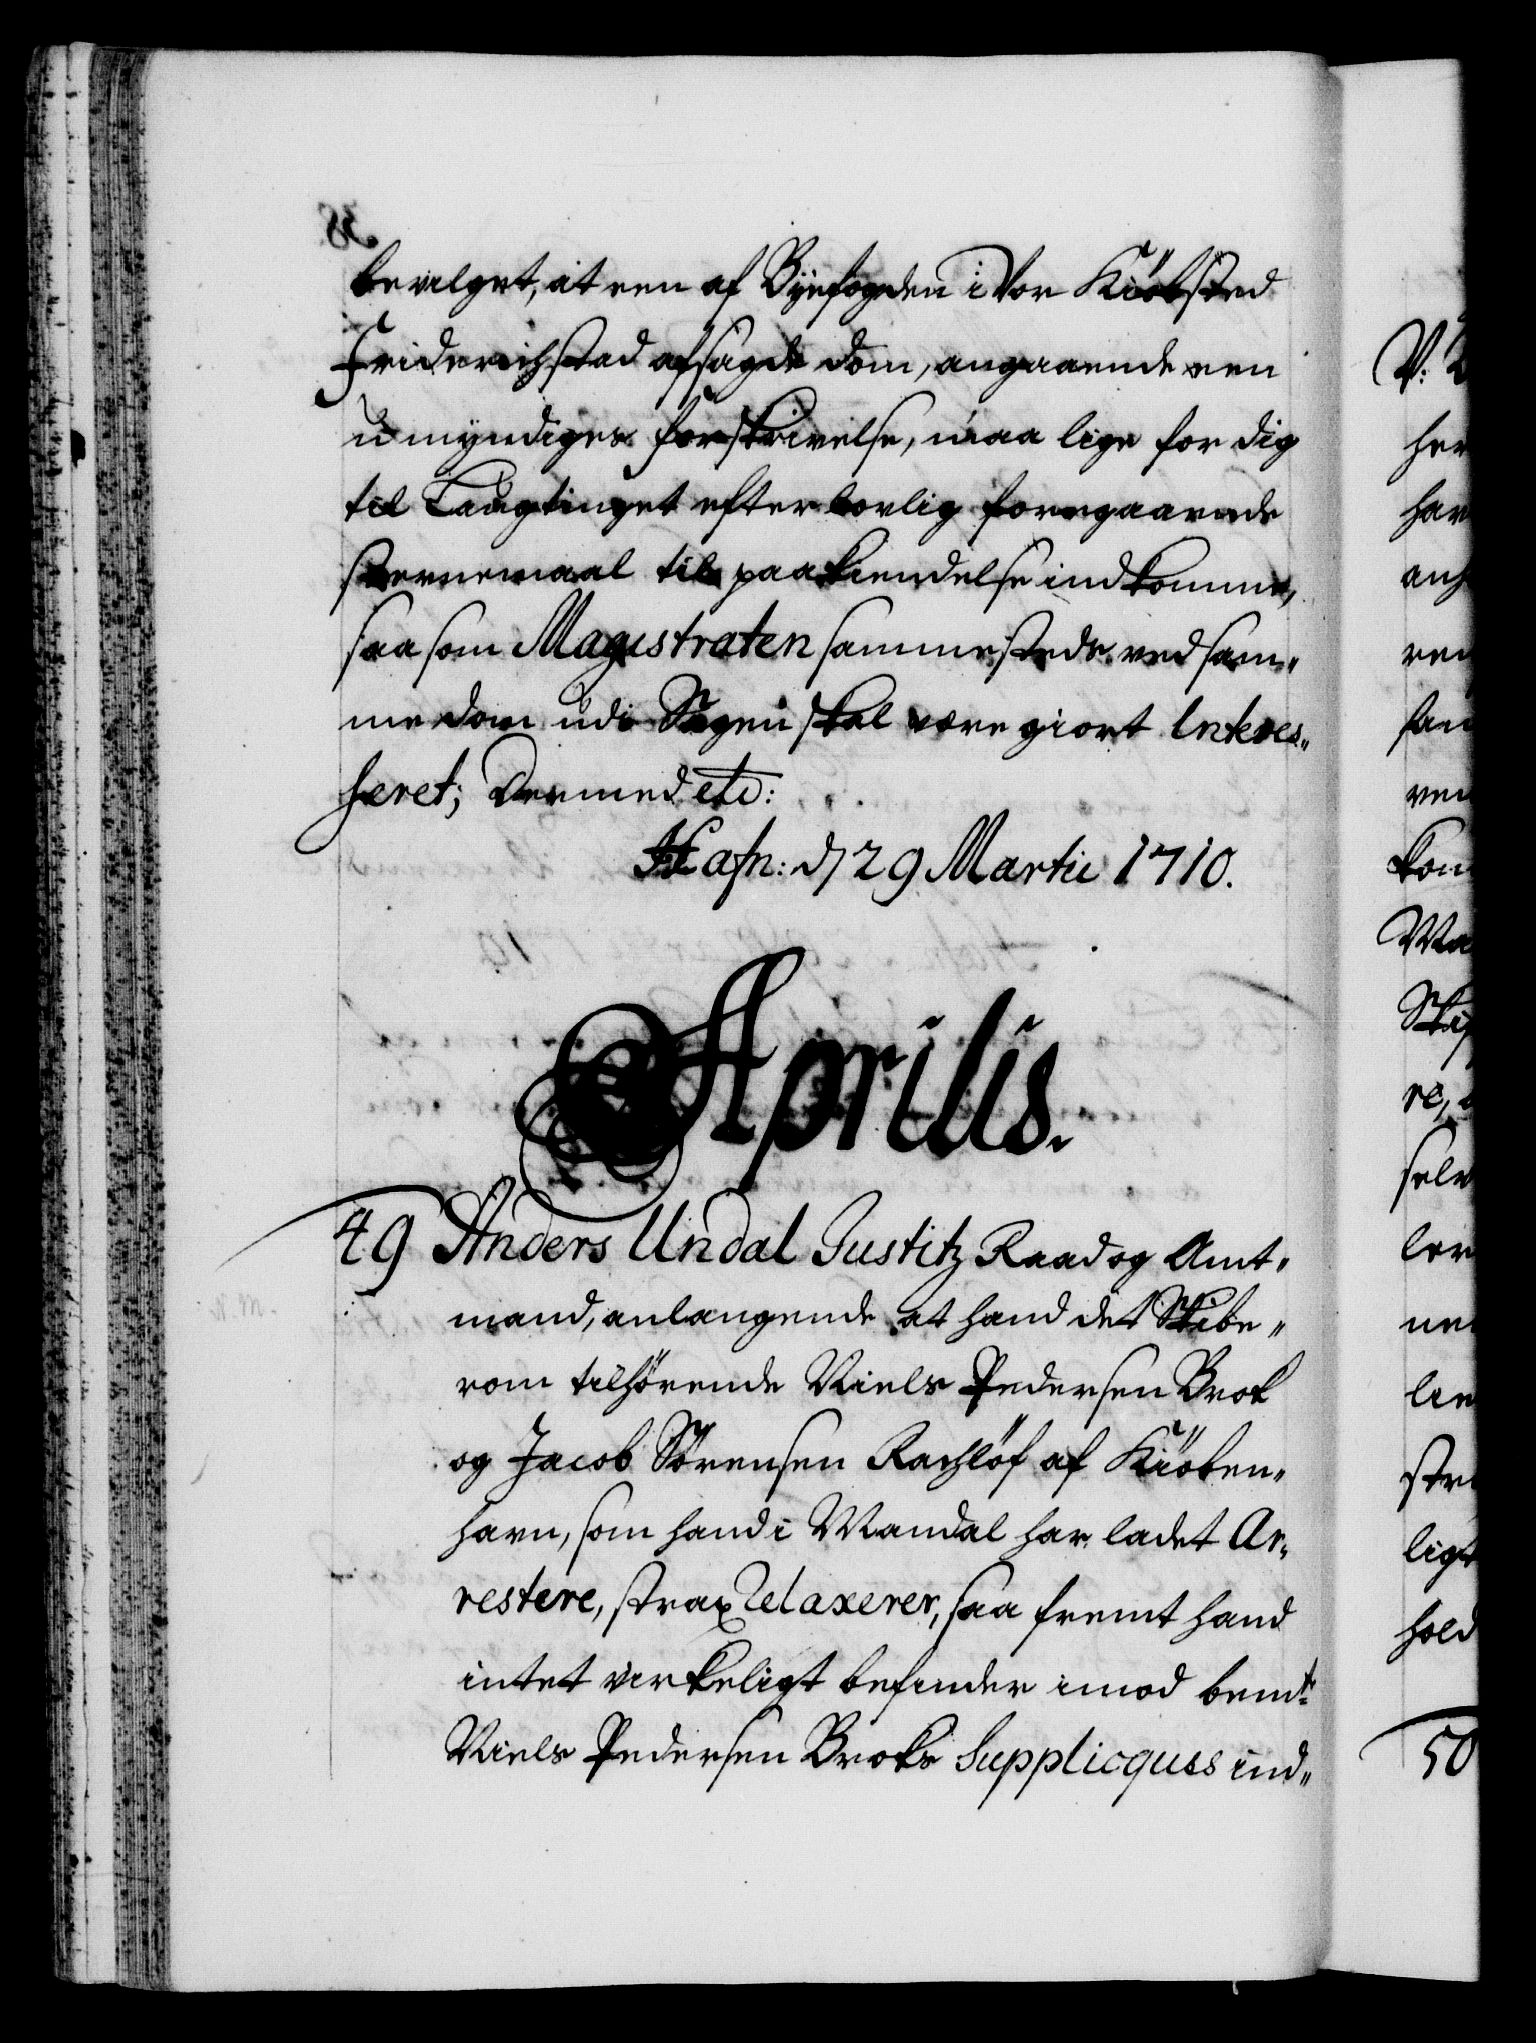 bevilget, at een af Byefogden i Vor Kiöbsted
Friderichstad afsagde Dom, angaaende een
umyndiges forskrivelse, maa lige for dig
til Laugtinget efter lovlig foregaaende
stevnemaal till paakiendelse indkomme,
saa som Magistraten sammesteds ved sam„
me Dom udi Sagen skal være giort Interes„
seret; Dermed etc:
Hafn: d 29 Martii 1710.
Aprilis.
49 Anders Undal Justitz Raad og Amt„
mand, anlangende at hand det Skibe„
rom tilhörende Niels Pedersen Brok
og Jacob Sörensen Rachlöf af Kiöben„
havn, som hand i Mandal har ladet Ar„
restere, strax relaxerer, saa fremt hand
intet virkeligt befinder imod bemt:
Niels Pedersen Broks Supplicques ind„
50